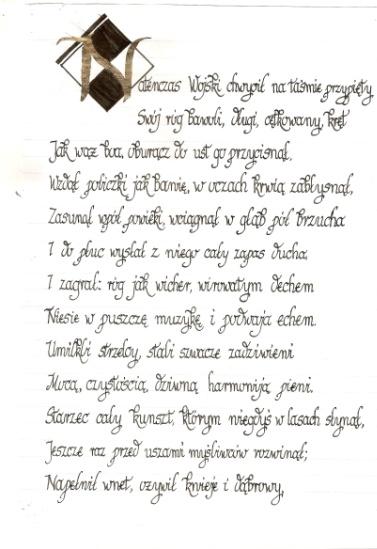 Natenczas Wojski chwycił na taśmie przypięty
Swój róg bawoli, długi, cętkowany, kręt
Jak wąż boa, oburącz do ust go przycisnął,
Wzdął policzki jak banię, w oczach krwią zabłysnął,
Zasunął wpół powieki, wciągnął w głąb pół brzucha
I do płuc wysłał z niego cały zapas ducha.
I zagrał: róg jak wicher, wirowatym dechem
Niesie w puszczę muzykę i podwaja echem.
Umilkli strzelcy, stali szwacze zadziwieni
Mocą, czystością, dziwną harmoniją pieni.
Starzec cały kunszt, którym niegdyś w lasach słynął,
Jeszcze raz przed uszami myśliwców rozwinął;
Napełnił wnet, ożywił knieje i dąbrowy,